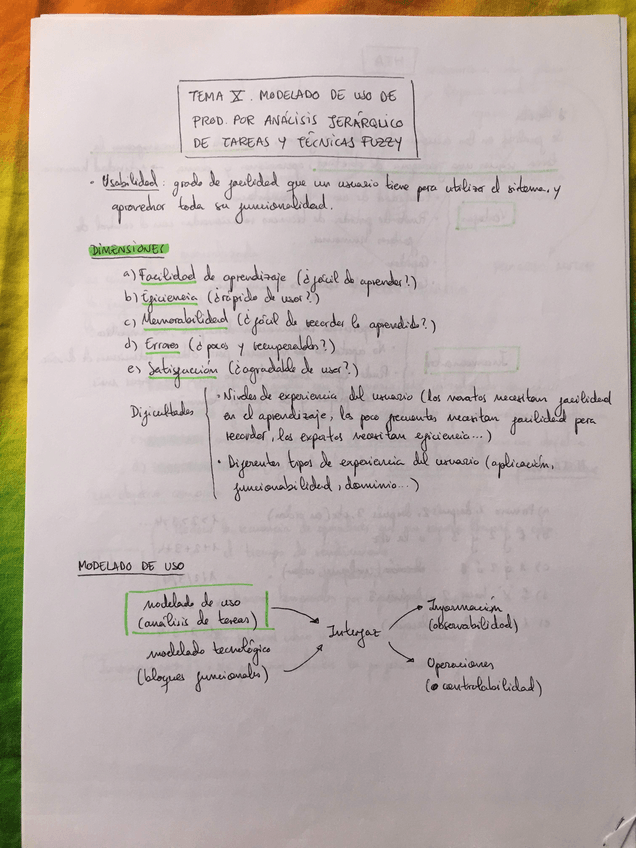 TEMA X. MODELADO DE USO DE
PROD. POR ANÁLISIS JERÁRQUICO
DE TAREAS Y TÉCNICAS FUZZY
· Usabilidad: grado de facilidad que un usuario tiene para utilizar el sistema, y
aprovechar toda su funcionalidad.
DIMENSIONES
a) Facilidad de aprendizaje (¿fácil de aprender?)
b) Eficiencia (¿rápido de usar?)
c) Memorabilidad (¿fácil de recordar lo aprendido?)
d) Errores (¿pocos y recuperables?)
e) Satisfacción (¿agradable de usar?)
Dificultades
· Niveles de experiencia del usuario (los novatos necesitan facilidad
en el aprendizaje, los poco frecuentes necesitan facilidad para
recordar, los expertos necesitan eficiencia...)
· Diferentes tipos de experiencia del usuario (aplicación,
funcionabilidad, dominio...)
MODELADO DE USO
modelado de uso
(análisis de tareas)
modelado tecnológico
(bloques funcionales)
Interfaz
Información
(observabilidad)
Operaciones
(controlabilidad)